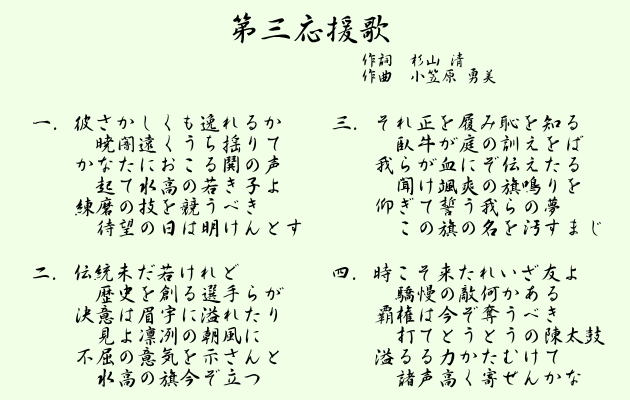 第三応援歌
作詞 杉山 清
作曲 小笠原 勇美
一．彼さかしくも逸れるか
暁闇遠くうち揺りて
かなたにおこる鬨の声
起て水高の若き子よ
練磨の技を競うべき
待望の日は明けんとす
二．伝統未だ若けれど
歴史を創る選手らが
決意は眉宇に溢れたり
見よ凛冽の朝風に
不屈の意気を示さんと
水高の旗今ぞ立つ
三．それ正を履み恥を知る
臥牛が庭の訓えをば
我らが血にぞ伝えたる
聞け颯爽の旗鳴りを
仰ぎて誓う我らの夢
この旗の名を汚すまじ
四．時こそ来たれいざ友よ
驕慢の敵何かある
覇権は今ぞ奪うべき
打てとうとうの陳太鼓
溢るる力かたむけて
諸声高く寄せんかな